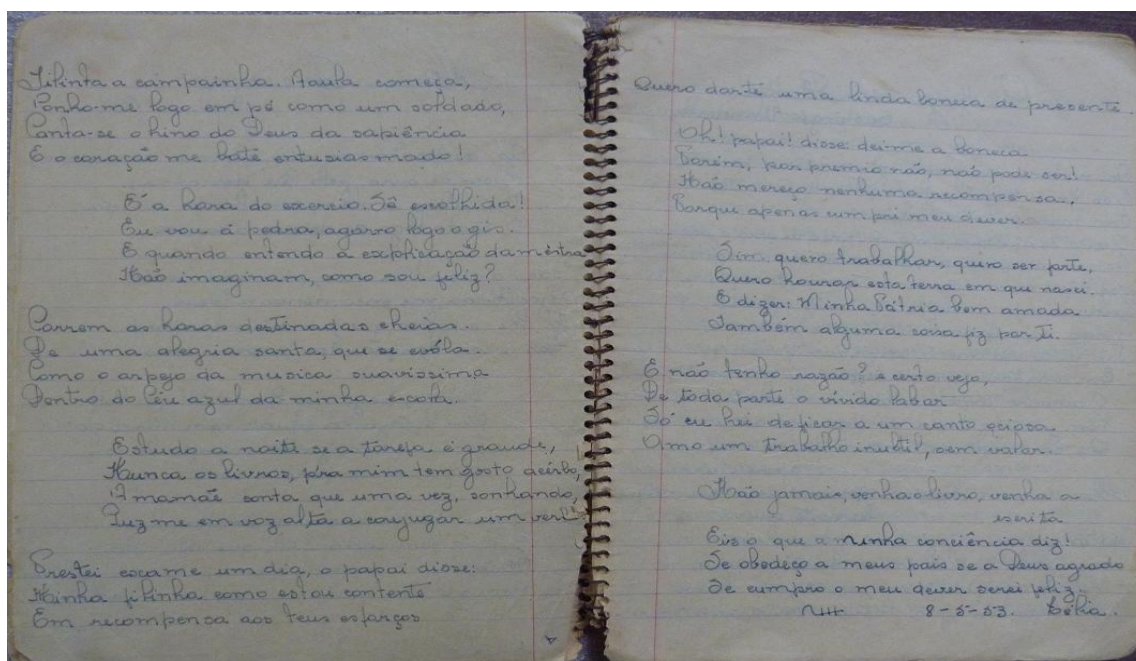 Tilinta a campainha. A aula começa,
Ponho-me logo em pé como um soldado,
Canta-se o hino do Deus da sapiência
E o coração me baté entusiasmado!
É a hora do excercio. Sê escolhida!
Eu vou á pedra, agarro logo o giz.
E quando entendo a explicação da mestra
Não imaginam, como sou feliz?
Correm as horas destinadas cheias.
De uma alegria santa, que se evóla.
Como o arpejo da musica suavissima
Dentro do Céu azul da minha escola.
Estudo a noite se a tarefa é grande,
Nunca os livros, p'ra mim tem gosto acérbo,
A mamãe conta que uma vez, sonhando,
Puz me em voz alta a conjugar um verbo
Prestei exame um dia, o papai disse:
Minha filinha como estou contente
Em recompensa aos teus esforços
Quero dar-te uma linda boneca de presente.
Oh! papai! disse: dei-me a boneca
Porém, por premio não, não pode ser!
Não mereço nenhuma recompensa,
Porque apenas cumpri meu dever.
Sim. quero trabalhar, quero ser forte,
Quero honrar esta terra em que nasci.
E dizer: Minha Pátria bem amada
Também alguma coisa fiz por Ti.
E não tenho razão? e certo vejo,
De toda parte o vívido labor
Só eu hei de ficar a um canto ociosa
Amo um trabalho inultil, sem valor.
Não jamais, venha o livro, venha a
escrita
Eis o que a minha conciência diz!
Se obedeço a meus pais se a Deus agrado
Se cumpro o meu dever serei feliz.
8-5-53. Célia.